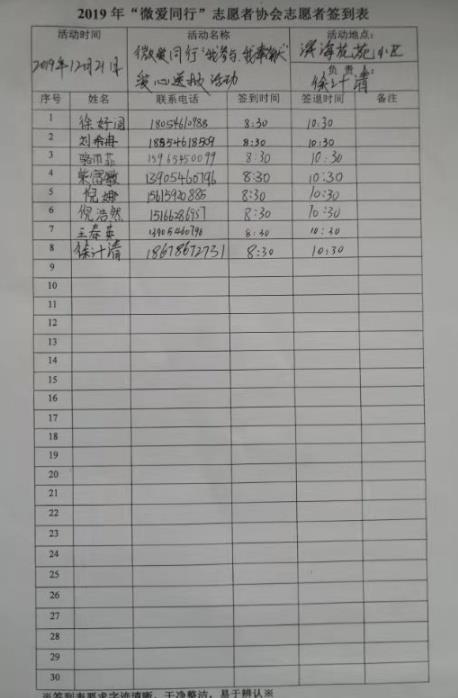 2019年“微爱同行”志愿者协会志愿者签到表
活动时间 活动名称 活动地点:
2019年12月21日 微爱同行“我参与、我奉献” 滨海花苑小区
爱心送报活动 负责人:
徐计清
序号 姓名 联系电话 签到时间 签退时间 备注
1 徐好 18054610988 8:30 10:30
2 刘希冉 18554618509 8:30 10:30
3 骆雨菲 15965450099 8:30 10:30
4 荣富敏 13905460796 8:30 10:30
5 倪娜 15615920885 8:30 10:30
6 倪浩然 15166286957 8:30 10:30
7 王春英 13905460796 8:30 10:30
8 徐计清 18678672731 8:30 10:30
9
10
11
12
13
14
15
16
17
18
19
20
21
22
23
24
25
26
27
28
29
30
※签到表要求字迹清晰、干净整洁，易于辨认※